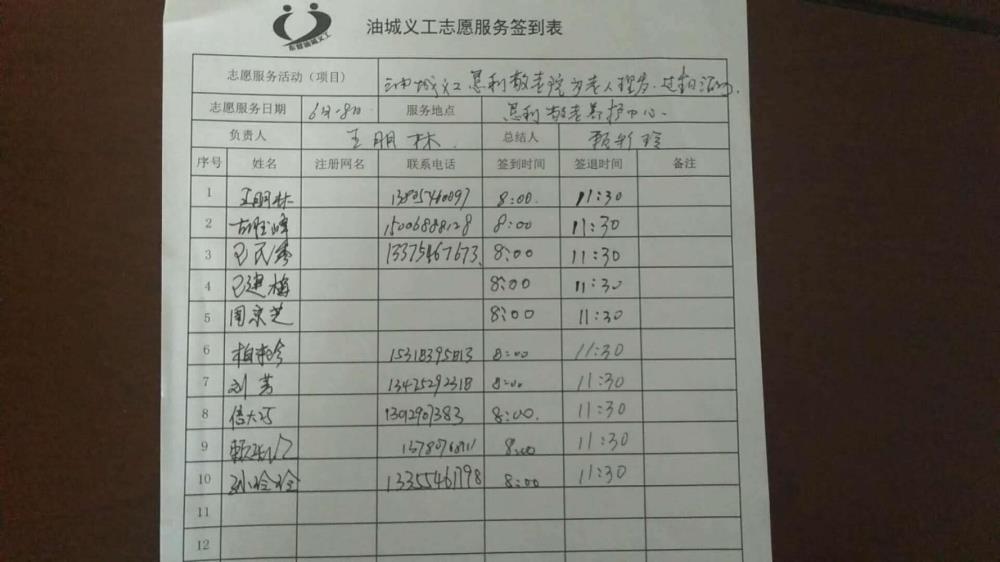 油城义工志愿服务签到表
东营油城义工
志愿服务活动（项目） 油城义工恩利敬老院为老人理发、过节活动
志愿服务日期 6月8日 服务地点 恩利敬老养护中心
负责人 王明林 总结人
序号 姓名 注册网名 联系电话 签到时间 签退时间 备注
1 王明林 13805460097 8:00 11:30
2 15006888128 8:00 11:30
3 巴民秀 13375467673 8:00 11:30
4 巴建梅 8:00 11:30
5 周京芝 8:00 11:30
6 15318395813 8:00 11:30
7 刘芳 13475292318 8:00 11:30
8 信大巧 8:00 11:30
9 8:00 11:30
10 孙玲玲 13355461798 8:00 11:30
11
12